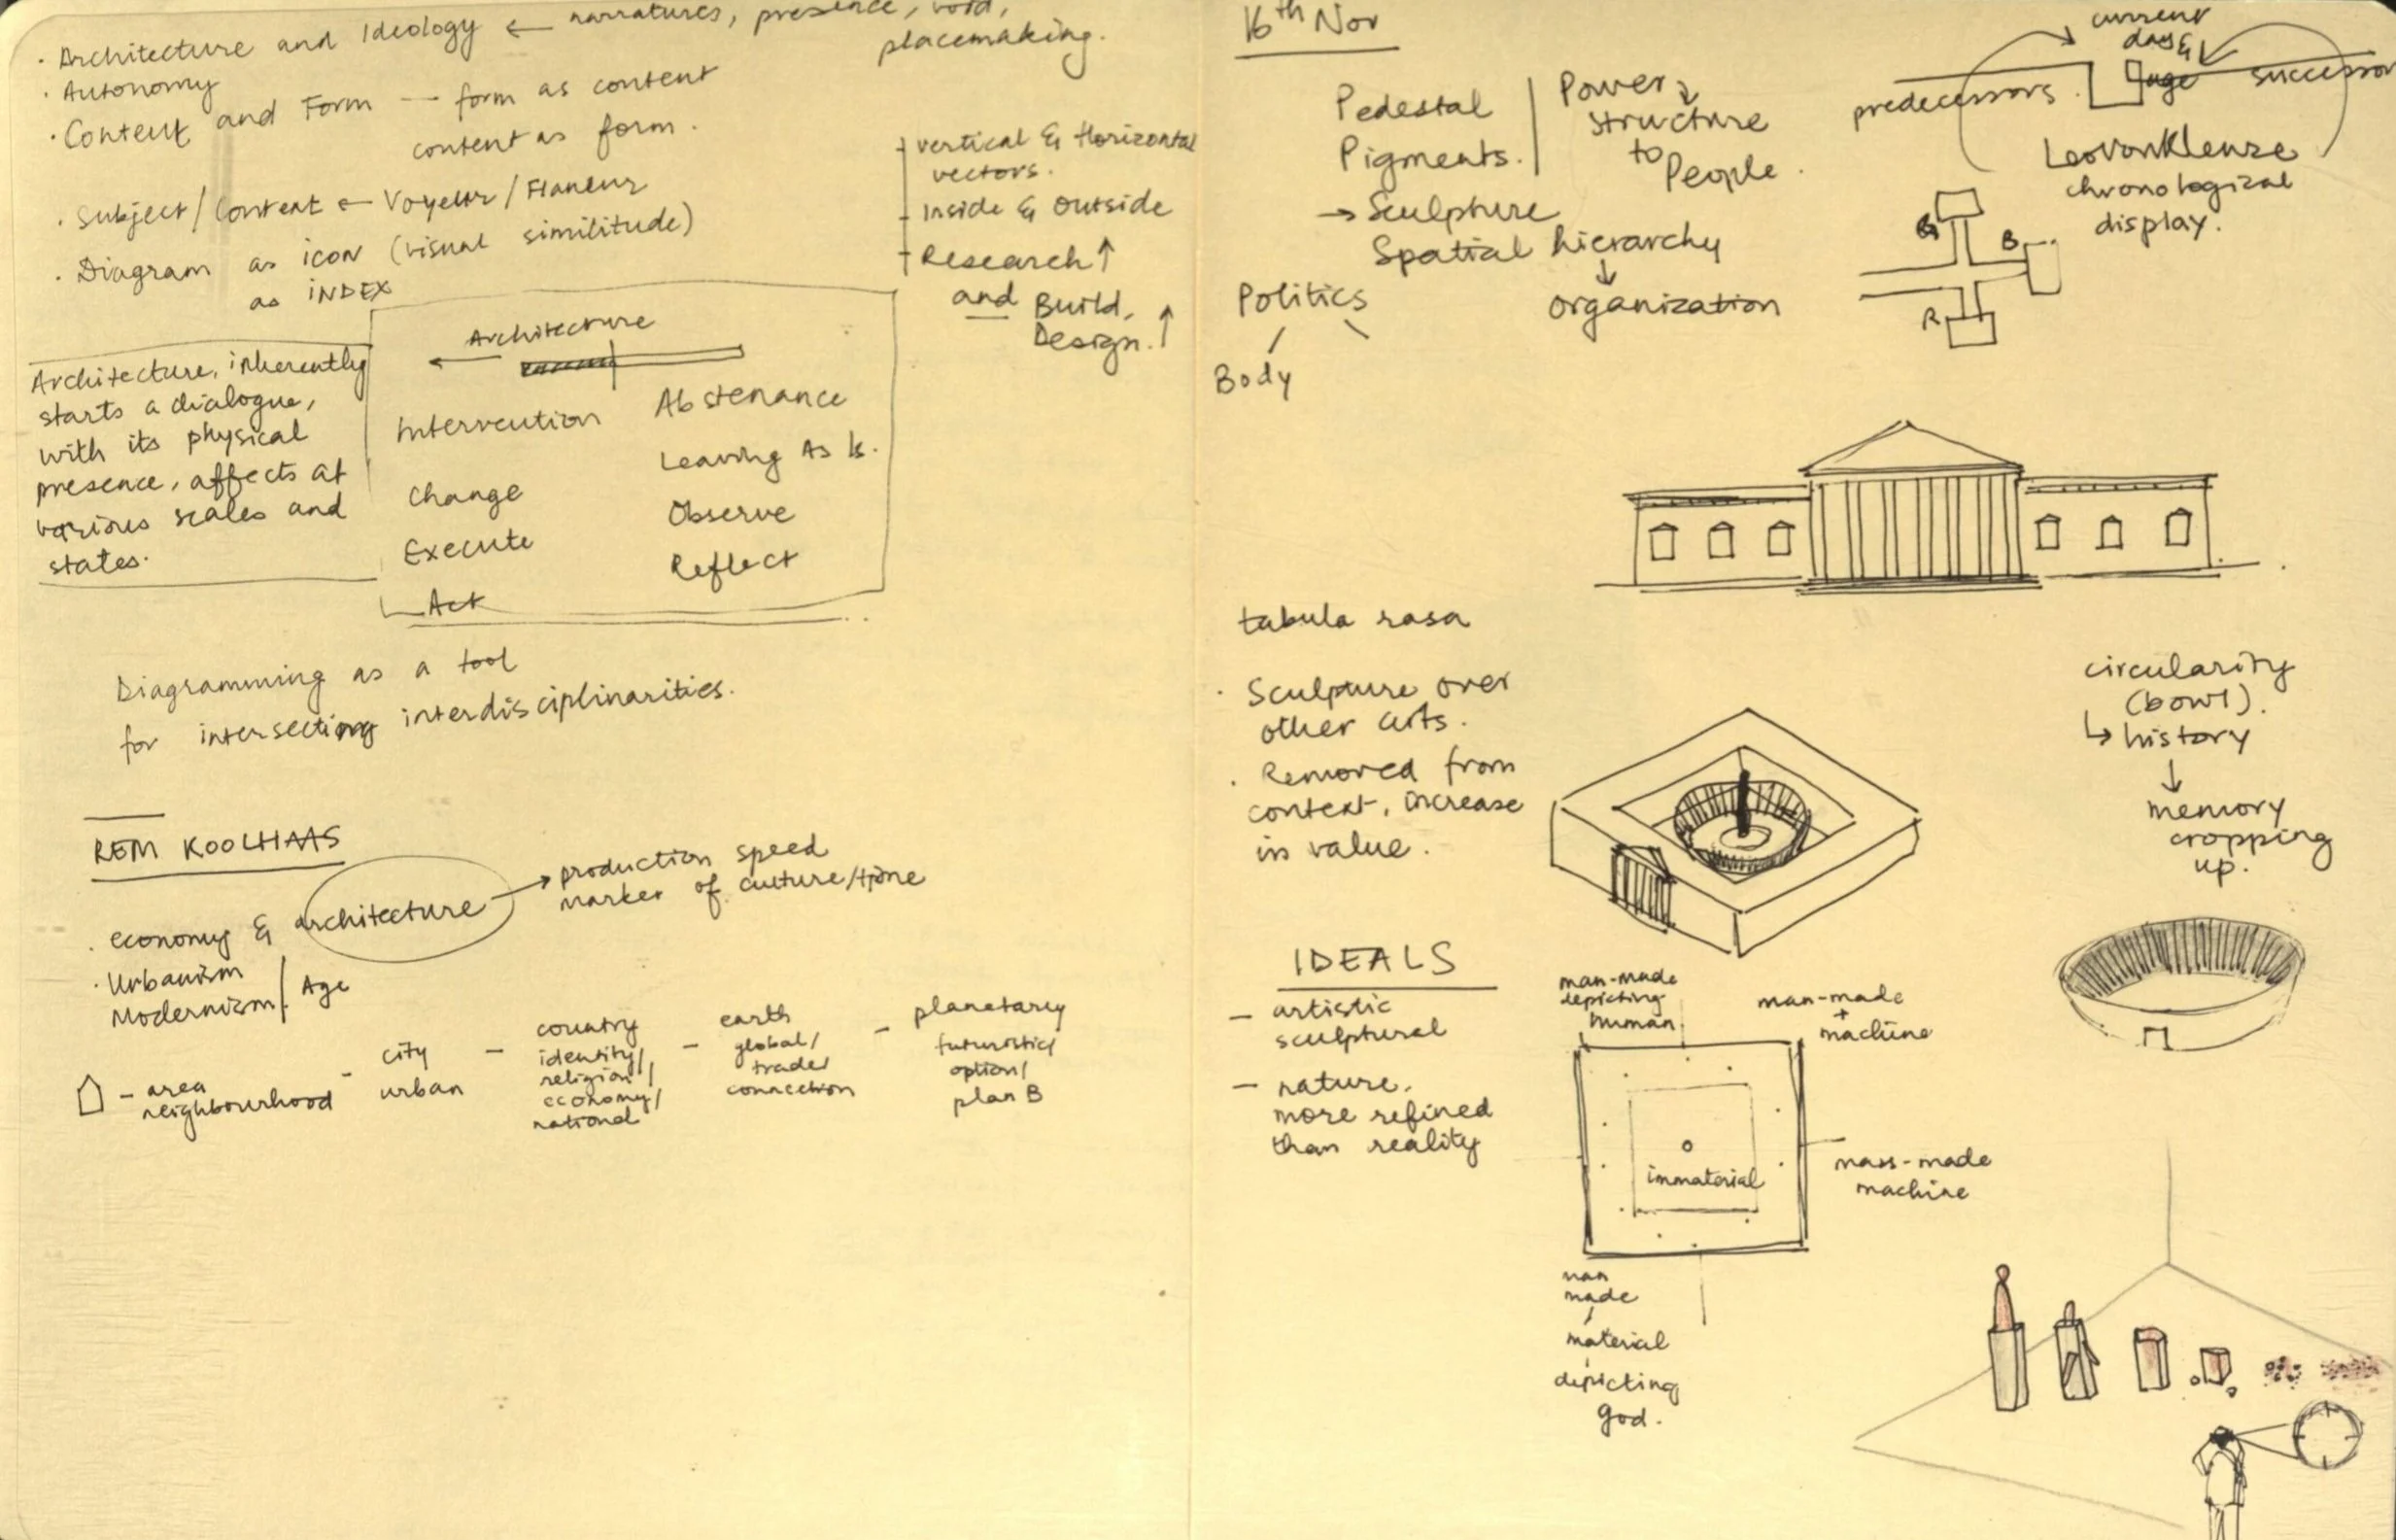 · Architecture and Ideology ← narratures, presence, void,
placemaking.
· Autonomy
· Content and Form — form as content
content as form.
· Subject/Content ← Voyeur/Flaneur
· Diagram as icon (visual similitude)
as INDEX
vertical & Horizontal
vectors.
Inside & Outside
Research ↑
and Build,
Design. ↑
Architecture, inherently
starts a dialogue,
with its physical
presence, affects at
various scales and
states.
Architecture
Intervention
Change
Execute
Act
Abstenance
Leaving As Is.
Observe
Reflect
Diagramming as a tool
for intersecting interdisciplinarities.
REM KOOLHAAS
· economy & architecture → production speed
marker of culture/time
· Urbanism
Modernism
Age
– area
neighbourhood
– city
urban
– country
identity/
religion/
economy/
national
– earth
global/
trade/
connection
– planetary
futuristic/
option/
plan B
16th Nov
Pedestal
Pigments.
Power
structure
to
People.
→ Sculpture
Spatial hierarchy
↓
organization
Politics
Body
current
day &
age
predecessors
successor
LeovonKlenze
chronological
display.
G
B
R
tabula rasa
· Sculpture over
other arts.
· Removed from
context, increase
in value.
circularity
(bowl).
↳ history
↓
memory
cropping
up.
IDEALS
– artistic
sculptural
– nature.
more refined
than reality
man-made
depicting
human
man-made
+
machine
mass-made
machine
immaterial
man
made
/
material
depicting
god.